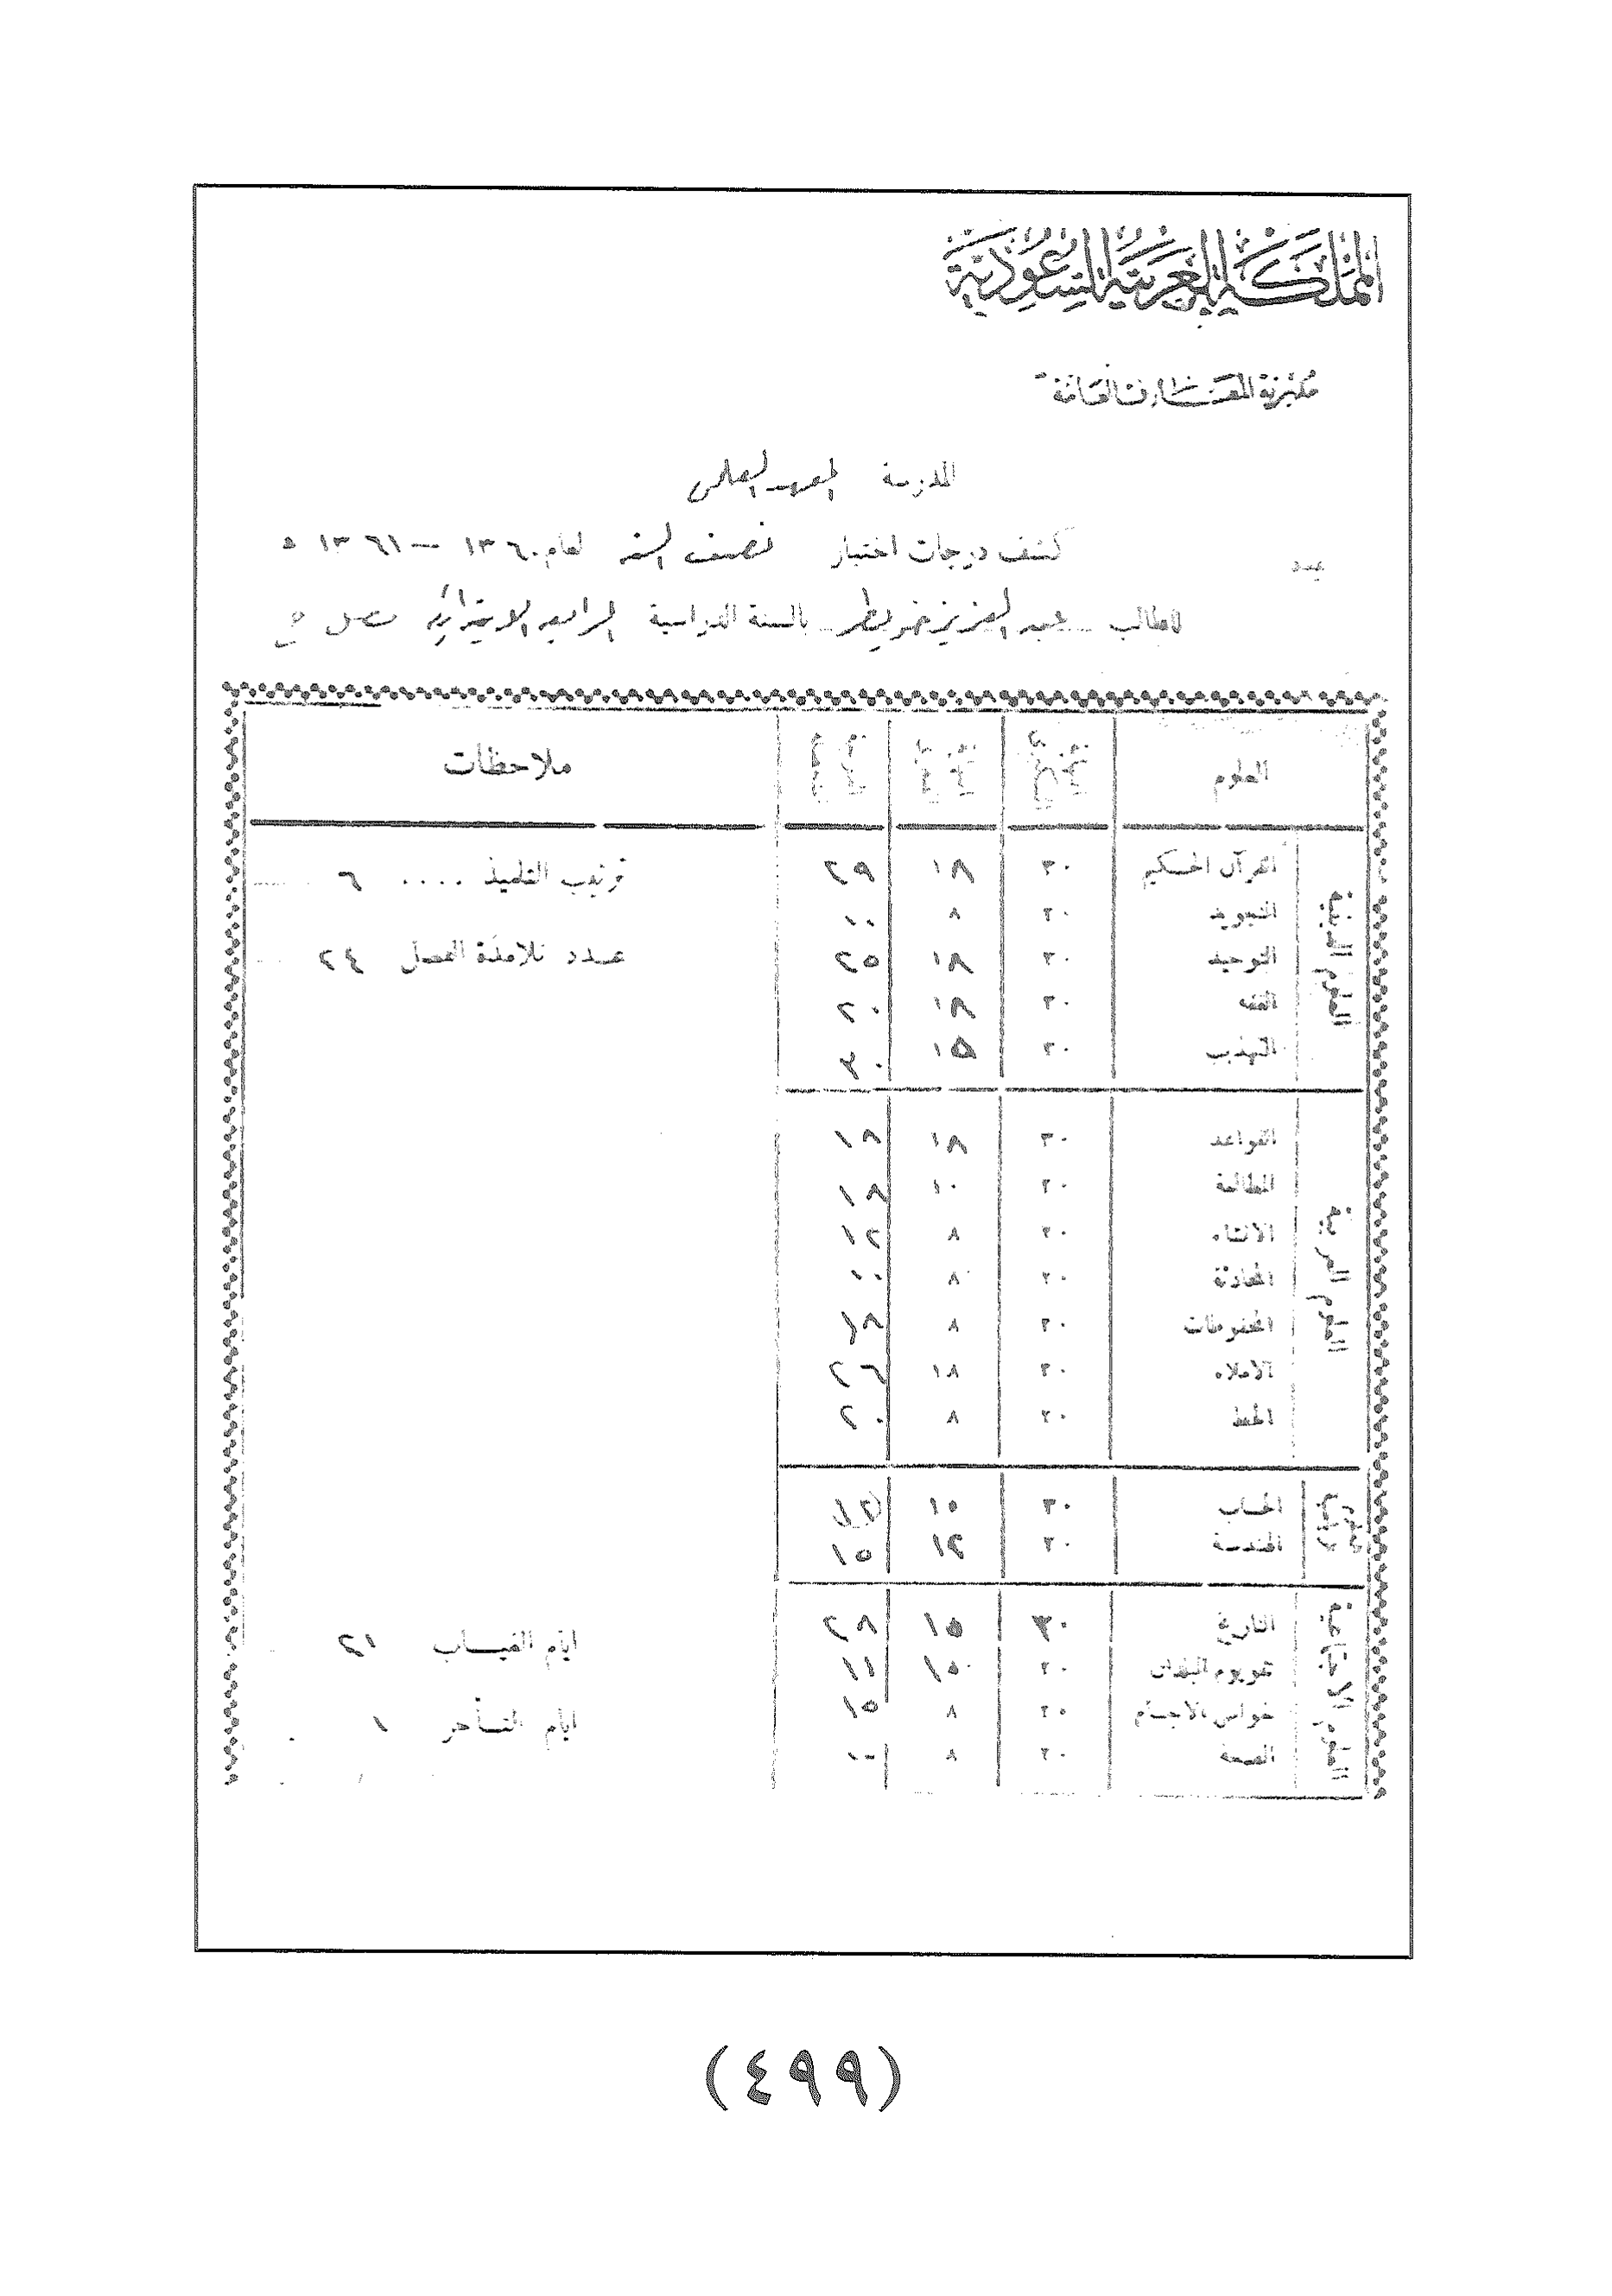 المملكة العربية السعودية
مديرية المعارف العامة
المدرسة المعهد العلمي
عدد كشف درجات اختبار نصف السنة لعام ١٣٦٠ — ١٣٦١ ه
للطالب عبد العزيز خويطر بالسنة الدراسية الرابعة الابتدائية فصل
العلوم الدرجة الدرجة الدرجة ملاحظات
العلوم الدينية
القرآن الحكيم ٣٠ ١٨ ٢٩ ترتيب التلميذ .... ٦
التجويد ٢٠ ٨ ١٠
التوحيد ٣٠ ١٨ ٢٥ عدد تلامذة الفصل ٢٤
الفقه ٣٠ ١٨ ٢٠
التهذيب ٣٠ ١٥ ٣٠
العلوم العربية
القواعد ٣٠ ١٨ ١٩
المطالعة ٢٠ ١٠ ١٨
الانشاء ٢٠ ٨ ١٢
المحادثة ٢٠ ٨ ١٠
المحفوظات ٢٠ ٨ ١٩
الاملاء ٣٠ ١٨ ٢٦
الخط ٢٠ ٨ ٢٠
علوم رياضية
الحساب ٣٠ ١٥
الهندسة ٣٠ ١٢ ١٥
العلوم الاجتماعية
التاريخ ٣٠ ١٥ ٢٨ ايام الغياب ١٢
تقويم البلدان ٣٠ ١٥ ١١
خواص الاجسام ٢٠ ٨ ١٥ ايام التأخر ١
الصحة ٢٠ ٨ ١٠
(٤٩٩)